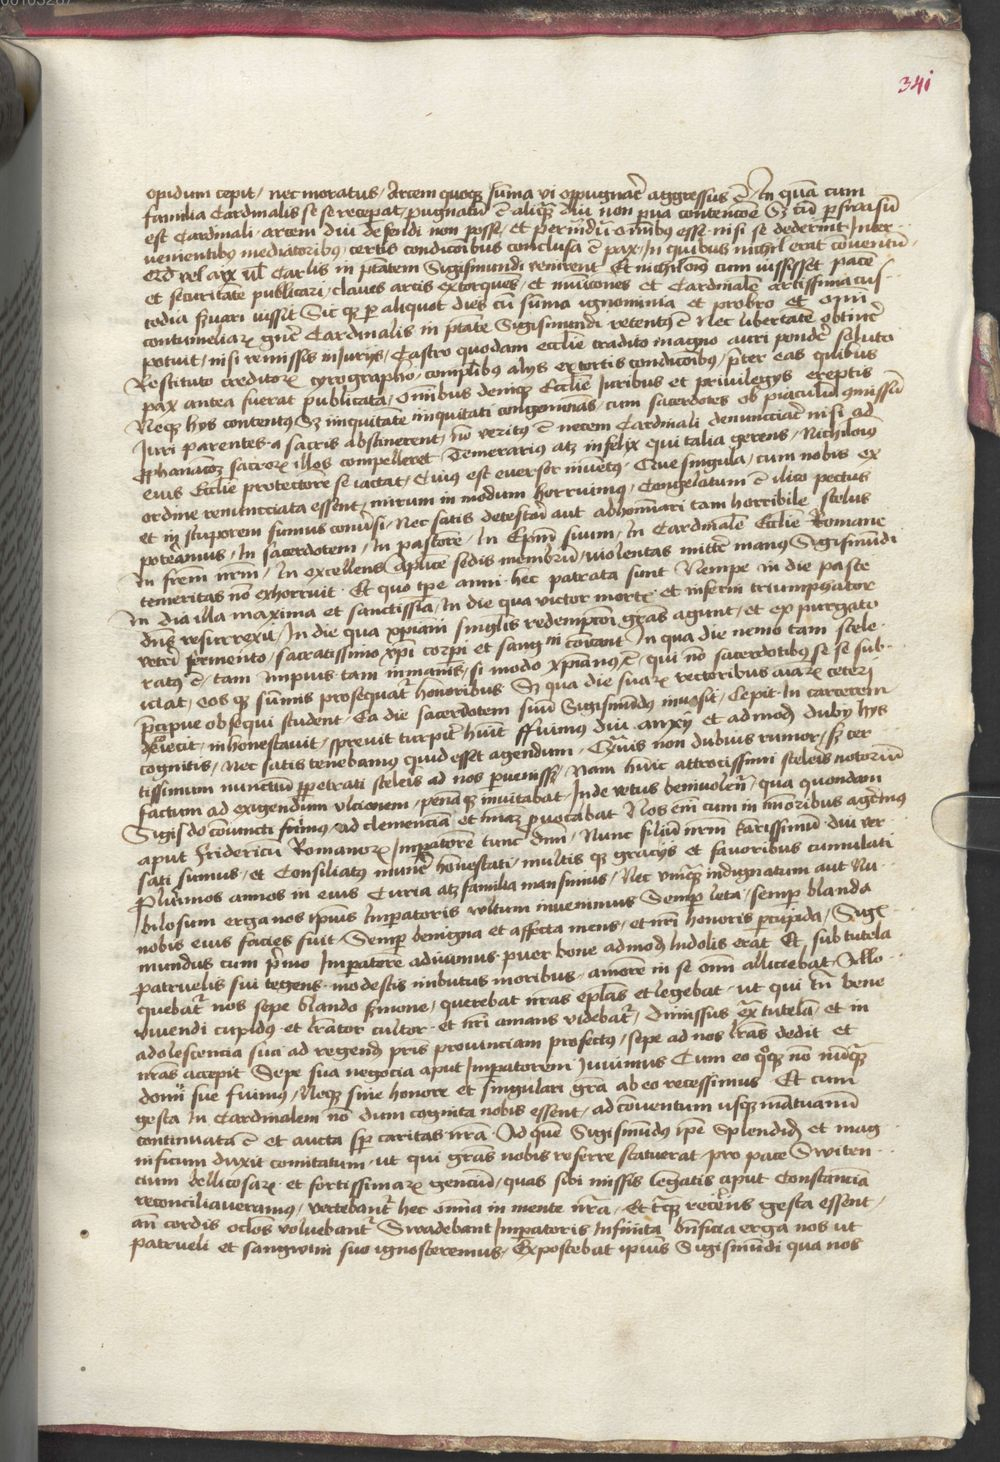 341
opidum cepit / nec moratus / Artem quoqz su̅ma vi oppugnar̄ aggressus ē / In qua̅ cum
familia Cardinalis se se receperat / pugnatu̅ ē aliqͣ diu non p̱ua contencoē Sz cu̅ p̱suasu̅
est Cardinali artem diu defendi non posse / et periculu̅ om̅ibus esse nisi se dederint Inter
uenientibus mediatoribus / certis condicoibus conclusa ē pax / In quibus nichil erat co̅uentu̅
vel arx in ptātem Sigismundi venirent Et nichilom̅s cum iussisset pace̅
et securitate̅ publicari / claues arcis extorquens / et municones et Cardinale̅ artissima cus
todia s̄uari iussit Sic qz p̱ aliquot dies cu̅ su̅ma ignominia et probro et om̅i
contumeliaꝝ gn̄e Cardinalis in ptāte Sigismundi retentus ē Nec libertate̅ obtiner̄
potuit / nisi remissis iniurys / Castro quodam eccl̄ie tradito magno auri ponder̄ soluto
Restituto creditoꝝ cyrographo / complibus alys extortis condicoibus / p̄ter eas quibus
pax antea fuerat publicata / om̅ibus deniqz Eccl̄ie Juribus et priuilegys ereptis
Neqz hys contentus Sz iniquitate̅ iniquitati congeminans / cum sacerdotes ob piaculu̅ c̱missu̅
Juri parentes a sacris abstinerent / no̅ veritus ē necem Cardinali denunciar̄ nisi ad
p̱phanac̄oz sacroꝝ illos compelleret Temerarius atz infelix qui talia gerens / Nichilom̅s
eius Eccl̄ie protectore̅ se iactat / Cuius est euersor inuentꝯ / Que singula / cum nobis ex
ordine renunciata essent mirum in modum horruimus / Congelatum ē ilico pectus
et in stuporem sumus conu̅si / Nec satis detestari aut abhominari tam horribile scelus
poteramus / In sacerdotem / In pastore̅ / In Ep̄m suum / In Cardinale̅ Eccl̄ie Romane
In fr̄em nr̄m / In excellens ap̄lice sedis membru̅ / violentas mitte̅ manus Sigismu̅di
temeritas no̅ exhorruit Et quo tp̄e anni hec patrata sunt Nempe in die pasce
In dia illa maxima et sanctissi̅a / In die qua victor mortꝭ et inferni triumphator
dn̄s resurrexit / In die qua xp̄iani sing̅lis redempco̅i gr̄as agunt / et expurgato
veteri fermento / sacratissimo xp̄i corp̱i et sang̅ni co̅icant In qua die nemo tam scele
ratus ē / tam Impius tam inmanis / si modo xp̄ianus ē / qui no̅ sacerdotibus se se sub
iciat / eos qz su̅mis prosequatr̄ honoribus Sz qua die suaꝝ rectoribus ai̅aꝝ ceterj
p̄cipue obsequi student Ea die sacerdotem suu̅ Sigismu̅dus inuasit / Cepit In carcerem
deiecit / inhonestauit / spreuit turpit̄ hu̅it ffuimus diu anxy et admod̄ duby hys
cognitis / Nec satis tenebamus quid esset agendum / Qͣuis non dubius rumor / sz cer
tissimum nunciu̅ p̱petrati sceleis ad nos p̱uenissz / Nam hinc attrocissimi sceleis notoriu̅
factum ad exigendum ulcionem / pena̅qz inuitabat / Inde vetus beniuolen̄ / qua quondam
Sigis̄do co̅iuncti fuimus / ad clemencia̅ et mi̅az p̱uocabat Nos em̅ cum in mi̅oribus age̅mus
aput Fridericu̅ Romanoꝝ Imp̱atore̅ tunc dnm̅ / Nunc filiu̅ nr̄m karissimu̅ diu ver
sati sumus / et Consiliatus mune̅ honestati / multis qz gracys et fauoribus cumulati
Plurimos annos in eius Curia atz familia mansimus / Nec vnqͣ indignatum aut Nu
bilosum erga nos ipius Imp̱atoris vultum inuenimus Semp̱ leta / semp̱ blanda
nobis eius facies fuit / Semp̱ benigna et affecta mens / et nr̄i honoris p̱cupida / Sigs̄
mundus cum p̄mo Imperatore̅ adiuimus puer bone admod̄ Indolis erat Et sub tutela
patruelis sui tegens modestis imbutus moribus / amore̅ in se om̅i alliciebat / Allo
quebatr̄ nos sepe blando s̄mone / querebat nr̄as ep̄las et legebat / ut qui tn̄ bene
viuendi cupidus et lr̄ator̄ cultor et nr̄i amans videbatr̄ / Dimissus ex̄ tutela̅ / et in
adolescencia sua ad regend̄ pr̄is prouinciam profectus / sepe ad nos lr̄as dedit et
nr̄as accepit Sepe sua negocia aput Imp̱atorem Iuuimus Cum eo qͦqz no̅ nu̅qͣ
domi sue fuimus / Neqz sine honore et singulari gr̄a ab eo recessimus Et cum
gesta In Cardinalem no̅ dum cognita nobis essent / ad co̅uentum usqz ma̅tuanu̅
continuata ē et aucta sp̱ caritas nr̄a Ad que̅ Sigismu̅dus ip̄e Splendid̄ et mag
nificum duxit comitatum ut qui gr̄as nobis referre statuerat pro pace Switen
cium bellicosaꝝ et fortissimaꝝ genciu̅ / quas sibi missis legatis aput Constancia̅
reconciliaueramus / vertebantr̄ hec om̅ia in mente nr̄a / Et tqͣ rece̅is gesta essent /
an̄ cordis oc̅los voluebantr̄ Swadebant Imp̱atoris Infinita bn̄ficia erga nos ut
patrueli et sangwini suo ignosceremus / Exposcebat ipius Sigismu̅di qua nos